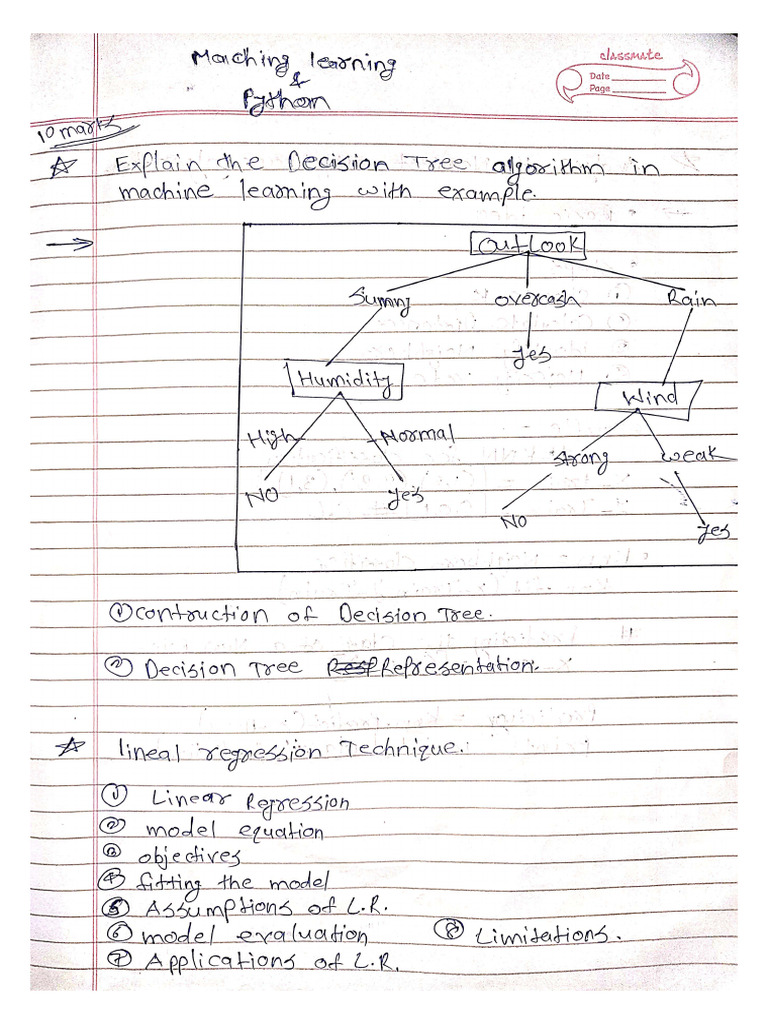 Maching learning
&
Python
classmate
Date
Page
10 marks
Explain the Decision Tree algorithm in
machine learning with example.
Outlook
Sunny overcash Rain
Yes
Humidity
Wind
High Normal
Strong weak
NO Yes
NO
Yes
① Contruction of Decision Tree.
② Decision Tree Representation.
lineal regression Technique.
① Linear Regression
② model equation
③ objectives
④ fitting the model
⑤ Assumptions of L.R.
⑥ model evaluation ⑧ Limitations.
⑦ Applications of L.R.